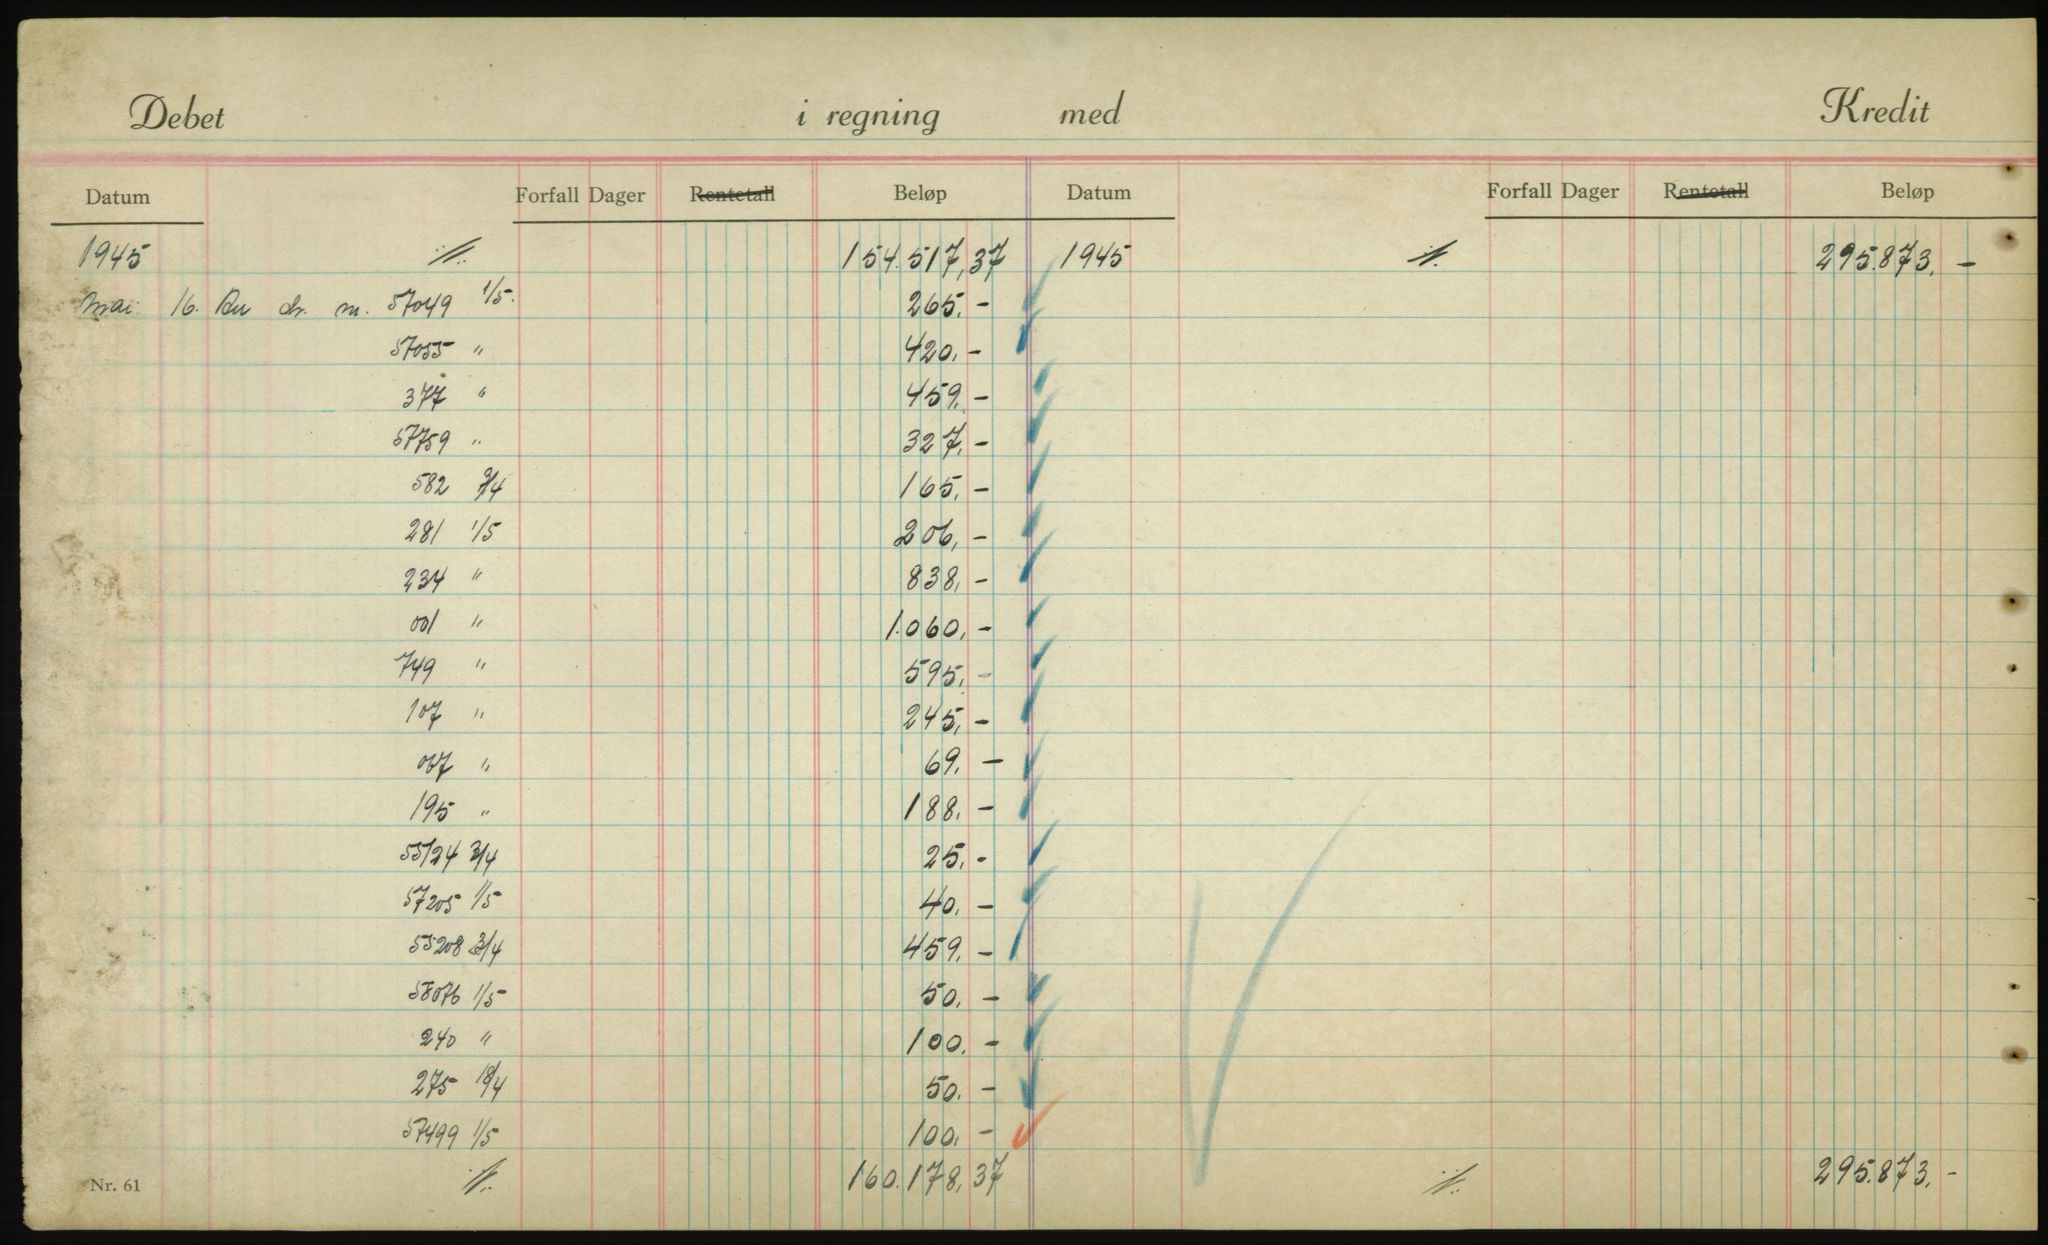 Debet i regning med Kredit
Datum Forfall Dager Rentetall Beløp Datum Forfall Dager Rentetall Beløp
1945 ·/. 154.517,37 1945 ·/. 295.873,-
Mai 16. An ch. m. 57049 1/5. 265,-
57055 " 420,-
377 " 459,-
57759 " 327,-
582 3/4 165,-
281 1/5 206,-
234 " 838,-
001 " 1.060,-
749 " 595,-
107 " 245,-
067 " 69,-
195 " 188,-
55124 3/4 25,-
57205 1/5 40,-
55208 3/4 459,-
58076 1/5 50,-
240 " 100,-
275 18/4 50,-
57499 1/5 100,-
Nr. 61 ·/. 160.178,37 ·/. 295.873,-